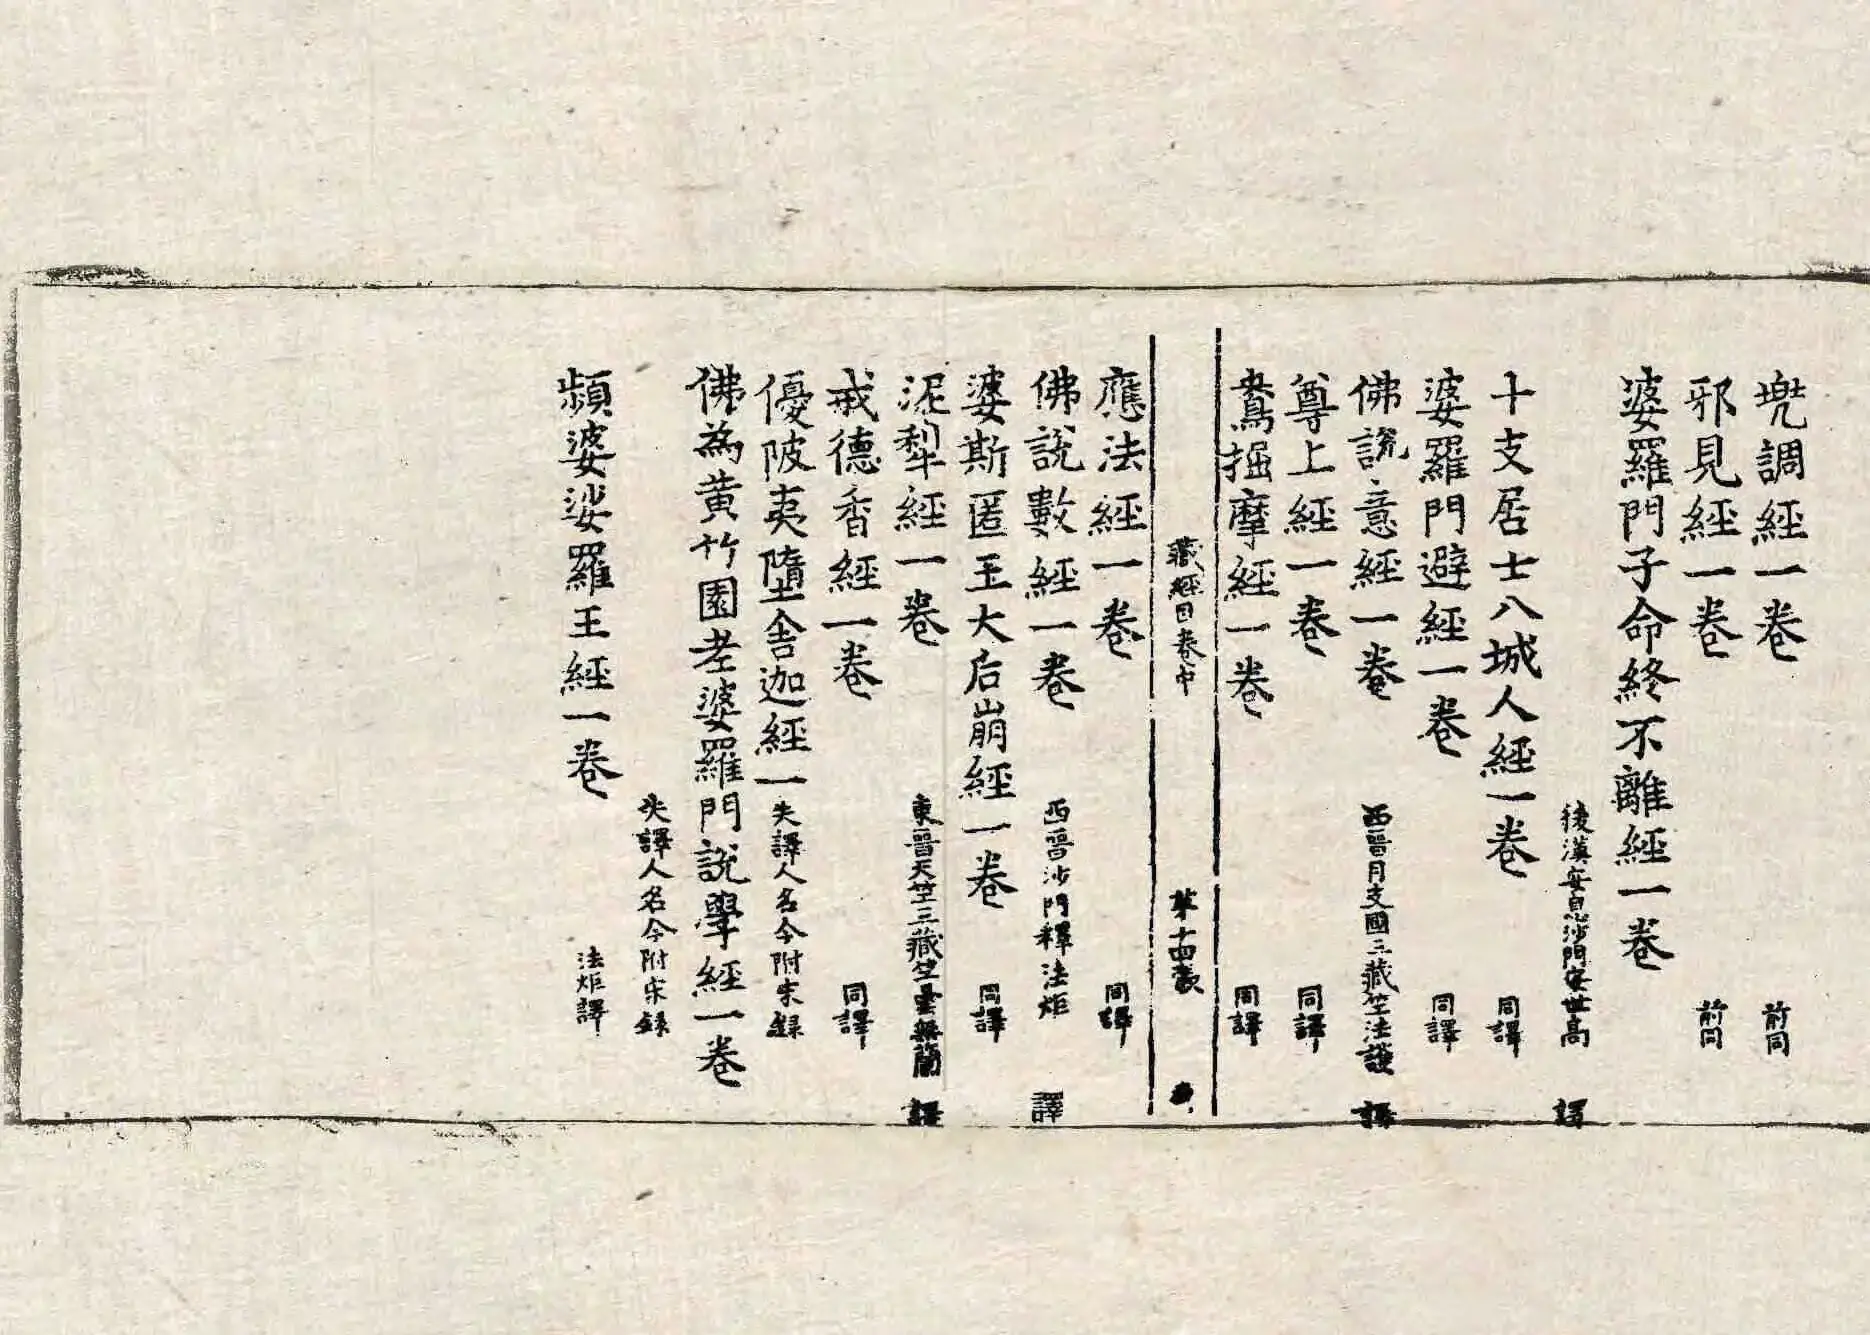 兠調經一卷 前同
邪見經一卷 前同
婆羅門子命終不離經一卷
後漢安息沙門安世高 譯
十支居士八城人經一卷 同譯
婆羅門避經一卷 同譯
佛説意經一卷 西晉月支國三藏竺法護 譯
尊上經一卷 同譯
鴦掘摩經一卷 同譯
藏經目卷中 第十四張
應法經一卷 同譯
佛說數經一卷 西晉沙門釋法炬 譯
婆斯匿王大后崩經一卷 同譯
泥犁經一卷 東晉天竺三藏竺曇無蘭 譯
戒德香經一卷 同譯
優陂夷墮舍迦經一 失譯人名今附宋録
佛為黄竹園老婆羅門說學經一卷
失譯人名今附宋録
頻婆娑羅王經一卷 法炬譯